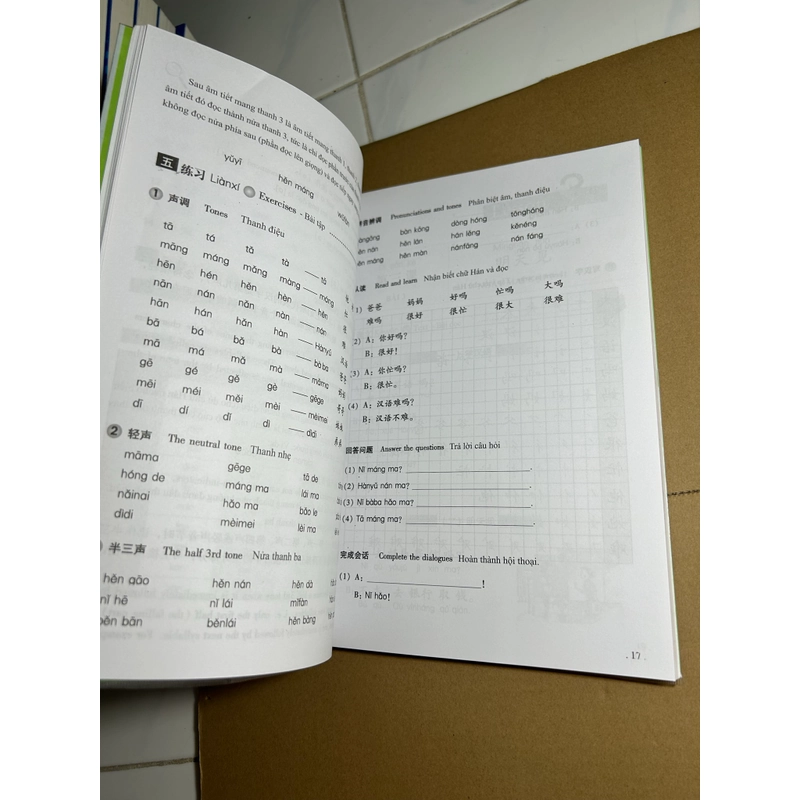 Sau âm tiết mang thanh 3 là âm tiết mang thanh 1,
âm tiết đó đọc thành nửa thanh 3, tức là chỉ đọc phần
không đọc nửa phía sau (phần đọc lên giọng) và đọc tiếp ngay
yǔyī hěn máng
五 练习 Liànxí Exercises - Bài tập
1 声调 Tones Thanh điệu
tā tá tǎ tà ____ tā
māng máng mǎng màng ____ máng
hēn hén hěn hèn ____ hěn
nān nán nǎn nàn ____ nán
hān hán hǎn hàn ____ Hànyǔ
bā bá bǎ bà ____ bàba
mā má mǎ mà ____ māma
gē gé gě gè ____ gēge
mēi méi měi mèi ____ mèimei
dī dí dǐ dì ____ dìdi
2 轻声 The neutral tone Thanh nhẹ
māma gēge tā de
hóng de máng ma lái ma
nǎinai hǎo ma bǎo le
dìdi mèimei lèi ma
半三声 The half 3rd tone Nửa thanh ba
hěn gāo hěn nán hěn dà
nǐ hē nǐ lái mǐfàn
běn bān běnlái hěn bàng
语音辨调 Pronunciations and tones Phân biệt âm, thanh điệu
bàn kōng dòng hóng tōngháng
hěn lán hán lěng kěnéng
hěn máng hěn màn nánfāng nán fáng
认读 Read and learn Nhận biết chữ Hán và đọc
(1) 爸爸 妈妈 好吗 忙吗 大吗
难吗 很好 很忙 很大 很难
(2) A：你好吗？
B：很好！
(3) A：你忙吗？
B：很忙。
(4) A：汉语难吗？
B：汉语不难。
回答问题 Answer the questions Trả lời câu hỏi
(1) Nǐ máng ma? ____.
(2) Hànyǔ nán ma? ____.
(3) Nǐ bàba hǎo ma? ____.
(4) Tā máng ma? ____.
完成会话 Complete the dialogues Hoàn thành hội thoại.
(1) A: ____!
B: Nǐ hǎo!
. 17 .